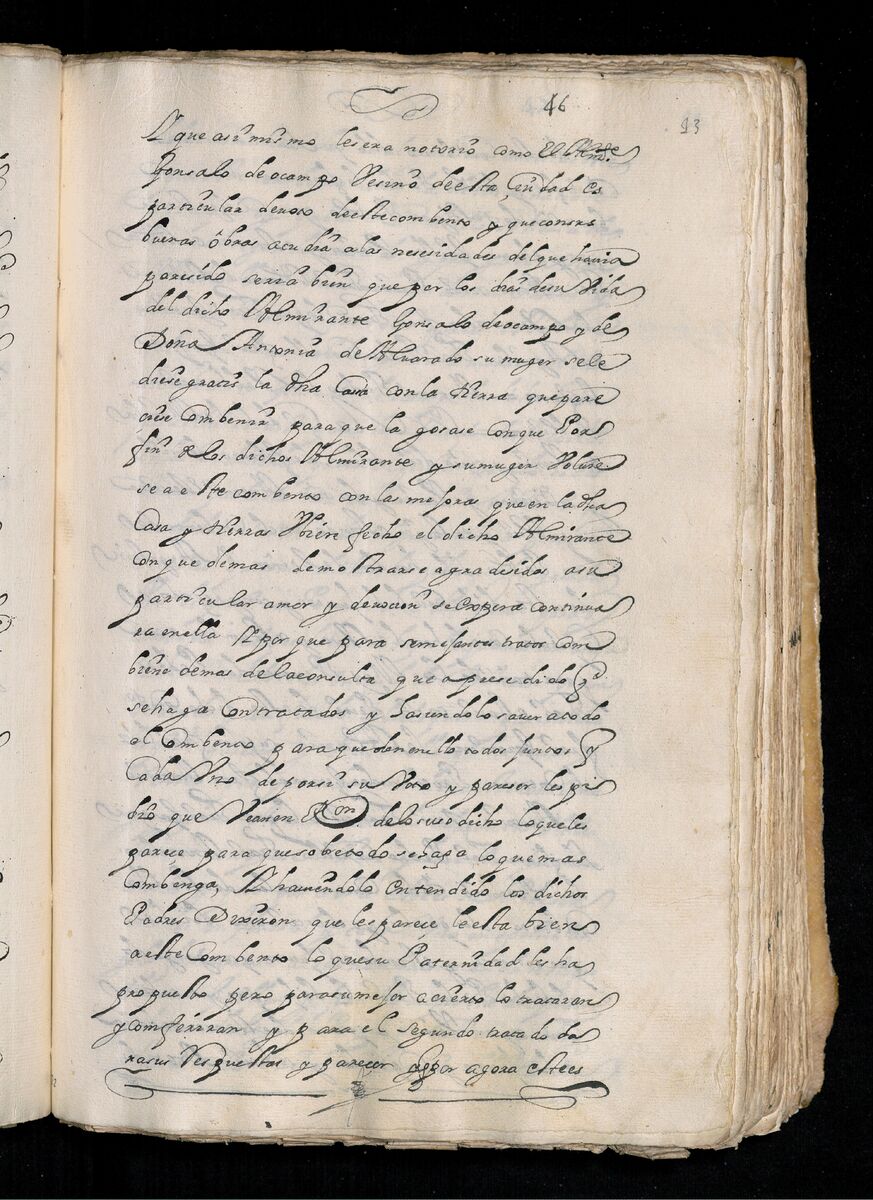 46
93
Y que asi mismo les era notorio como el Almite
Gonsalo de ocampo Vesino de esta Ciudad es
particular devoto de este combento y que con sus
buenas obras acudia a las nesesidades del que havia
paresido seria bien que por los dias de su Vida
del dicho Almirante Gonsalo de ocampo y de
Doña Antonia de Alvarado su muger se le
diese gratis la dha Casa con la tierra que pare
ciese Combenir para que la gosase Con que Por
fin de los dichos Almirante y su muger Volvie
se a este combento con las mejoras que en la dha
Casa y tierras Ubiere fecho el dicho Almirante
Con que demas de mostrarse agradesidos a su
particular amor y devocion se Espera continua
ra en ella Y por que para semejantes tratos com
biene demas de la consulta que a presedido
se haga Con tratados y hasiendolo saver a todo
el Combento para que den en ello todos juntos y
Cada Uno de por si su Voto y pareser les pi
dio que Vean en Ron de lo suso dicho lo que les
parece para que sobre todo se haga lo que mas
Combenga, Y haviendolo entendido los dichos
Padres Dixeron que les parece le esta bien
a este Combento lo que su Paternidad les ha
propuesto pero para su mejor acierto lo trataran
y comferiran y para el segundo tratado da
ran sus Respuestas y parecer por agora este es